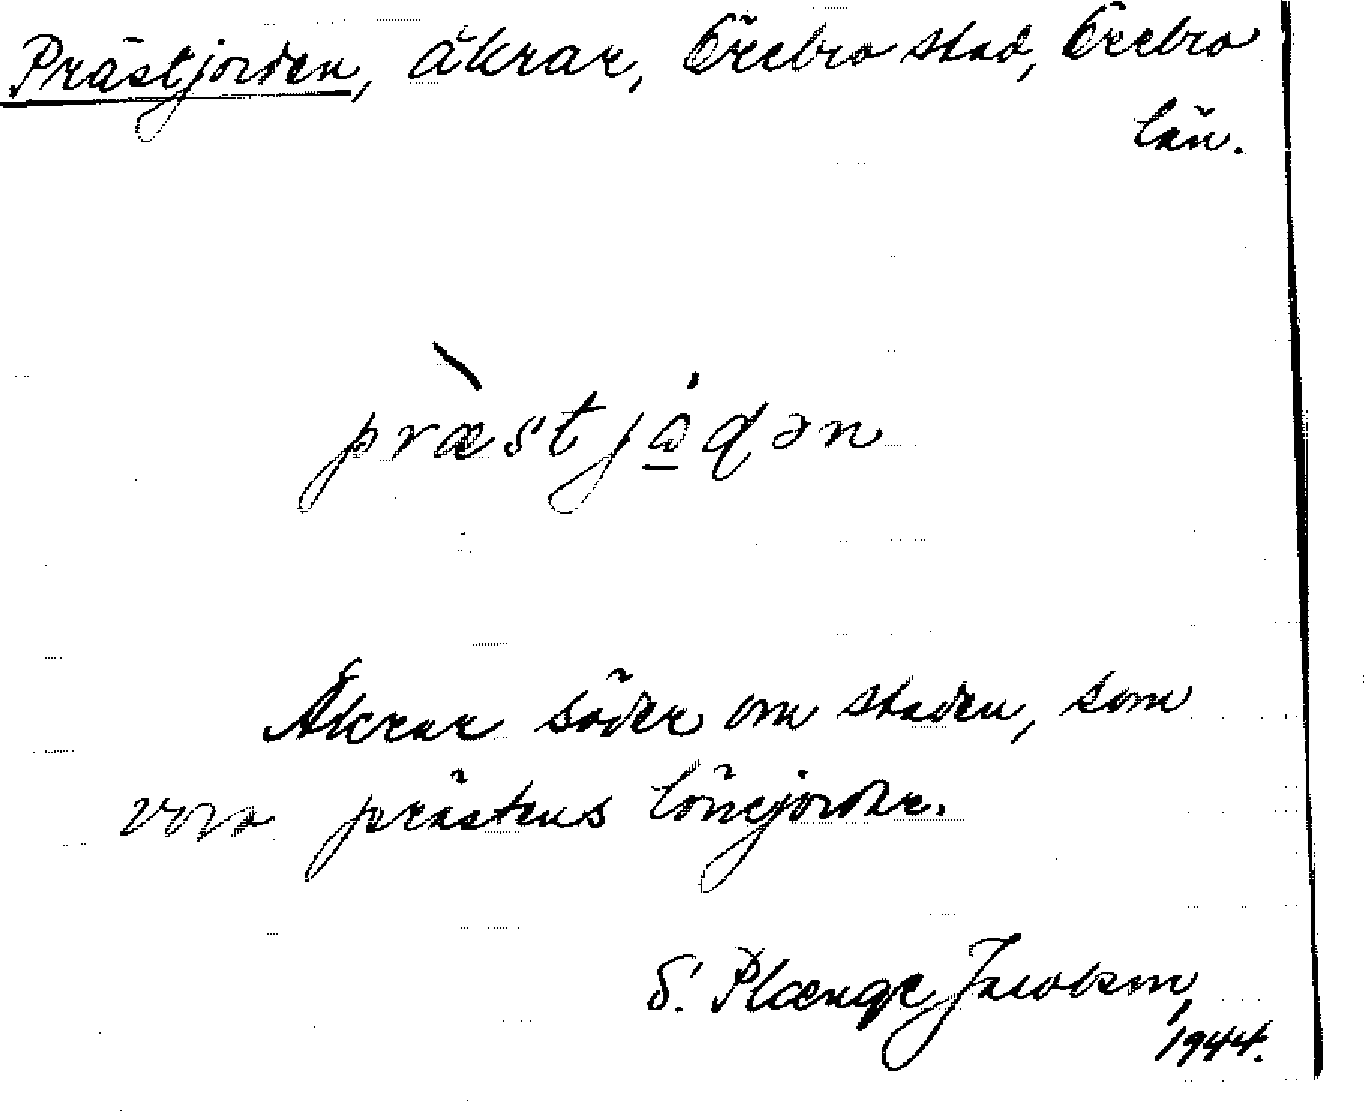 Prästjorden, åkrar, Örebro stad, Örebro
län.
præ̀stjɷ̇ɖən
Åkrar söder om staden, som
voro prästens lönejordar.
S. Plænge Jacobson,
1944.